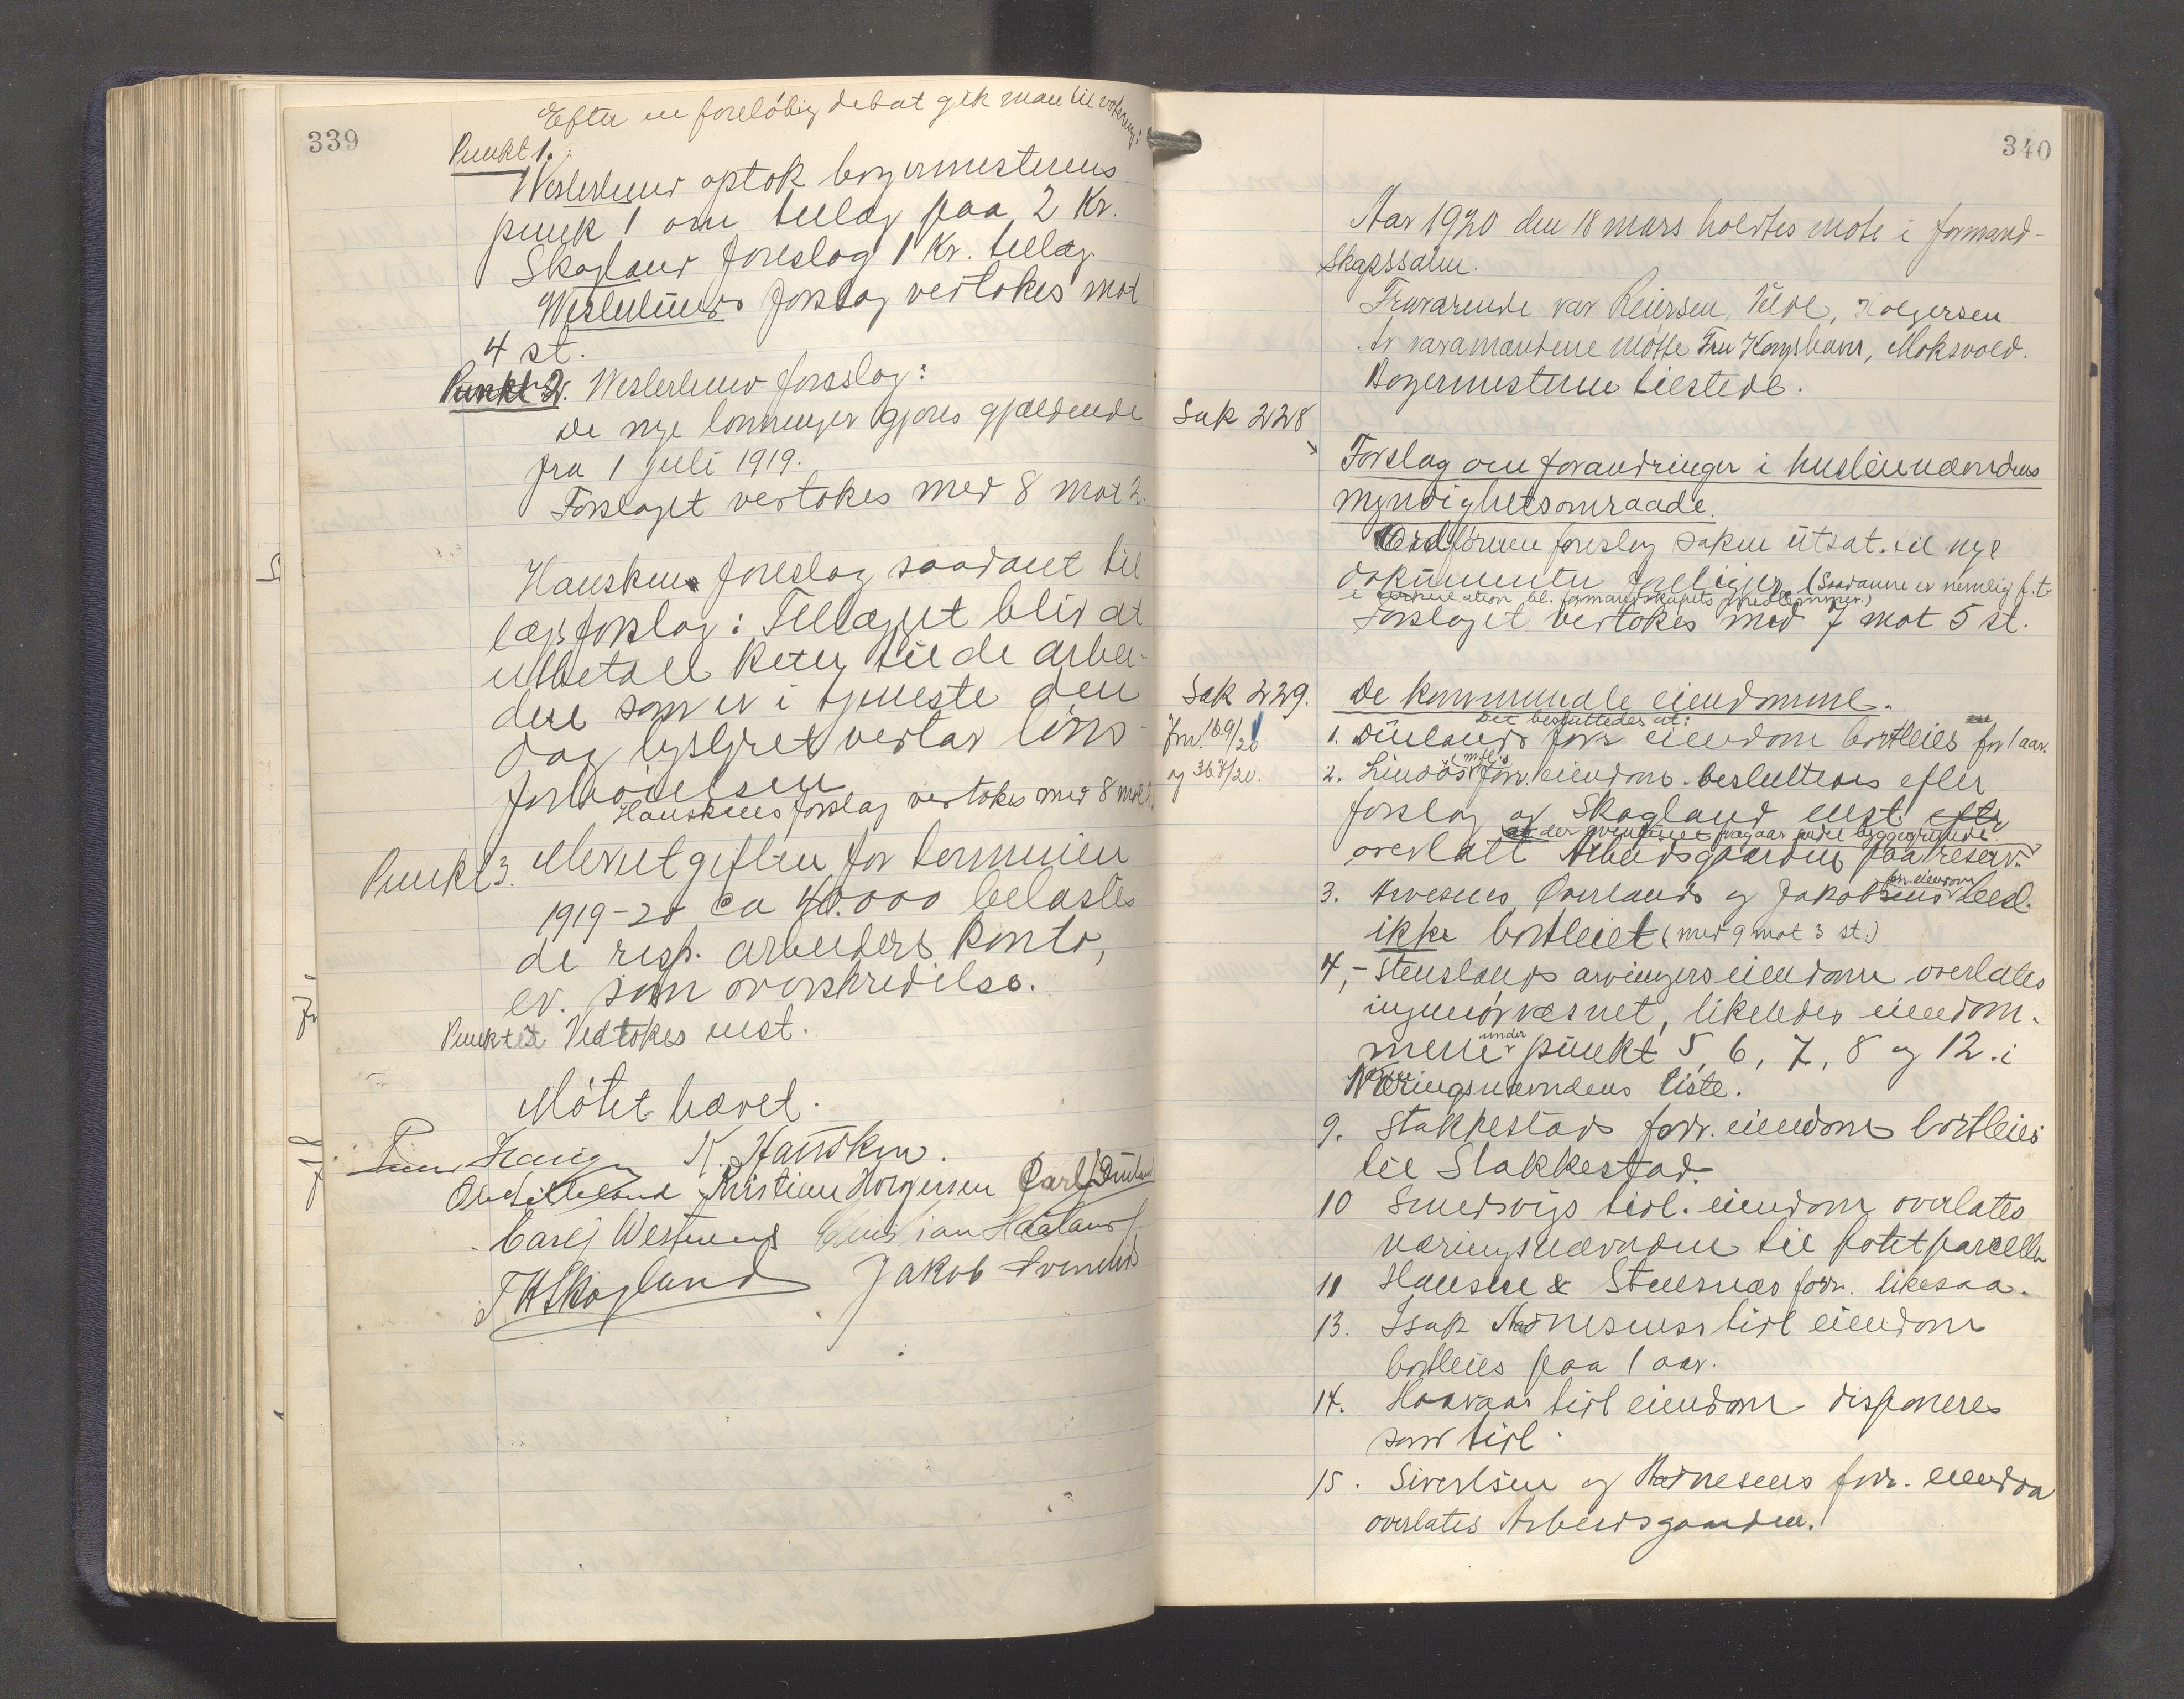 339
Efter en foreløbig debat gik man til votering:
Punkt 1.
Westerlund optok borgermesterens
punk 1 om tillæg paa 2 Kr.
Skogland foreslog 1 Kr. tillæg.
Westerlunds forslag vedtokes mot
4 st.
Punkt 2. Westerlund forslog:
De nye lønninger gjøres gjældende
fra 1 juli 1919.
Forslaget vedtokes med 8 mot 2.
Hausken foreslog saadant til
lægsforslag: Tillægget blir at
utbetale kun til de arbei-
dere som er i tjeneste den
dag bystyret vedtar løns-
forhøielsen
Hauskens forslag vedtokes med 8 mot
Punkt 3. Merutgiften for terminen
1919-20 ca 40.000 belastes
de resp. arbeiders konto,
ev. som overskridelse.
Punkt Vedtokes enst.
Møtet hævet.
K. Hausken.
Kristian Horgersen Carl
Carl J Westerlund Christian Haaland
T H Skogland Jakob Svendsen
340
Aar 1920 den 18 mars holdtes møte i formand-
skapssalen.
Fraværende var Reiersen, Vede, Holgersen
Av varamændene møtte Fru Kongshavn, Moksvold.
Borgermesteren tilstede.
Sak 228
Forslag om forandringer i husleienævndens
myndighetsomraade.
Ordføreren foreslog saken utsat til nye
dokumenter foreligger (Saadanne er nemlig f.t.
i cirkulation bl. formandskapets medlemmer.)
Forslaget vedtokes med 7 mot 5 st.
Sak 229.
De kommunale eiendomme.
Det besluttedes at:
Jrn. 169/20
og 367/20.
1. Duelands forr eiendom bortleies for 1 aar.
2. Lindøs m fl's forr. eiendom besluttedes efter
forslag av Skogland enst. efter
at der eventuelt fragaar endel byggegrunde
overlatt Arbeidsgaarden paa reserv.
3. Arnesens, Øverlands og Jakobsens forr. eiendom beslt.
ikke bortleiet (med 9 mot 3 st.)
4, - Stenslands arvingers eiendom overlates
ingeniørvæsnet, likeledes eiendom-
mene under punkt 5, 6, 7, 8 og 12 i
Næringsnævndens liste.
9. Stakkestads forr. eiendom bortleies
til Stakkestad.
10 Smedsvigs tidl. eiendom overlates
næringsnævnden til potetparceller
11 Hansen & Stuesnæs forr. likesaa.
13. Isak Adnesens tidl eiendom
bortleies paa 1 aar.
14. Haavaas tidl eiendom disponeres
som tidl.
15. Sivertsen og Adnesens forr. eiendom
overlates Arbeidsgaarden.